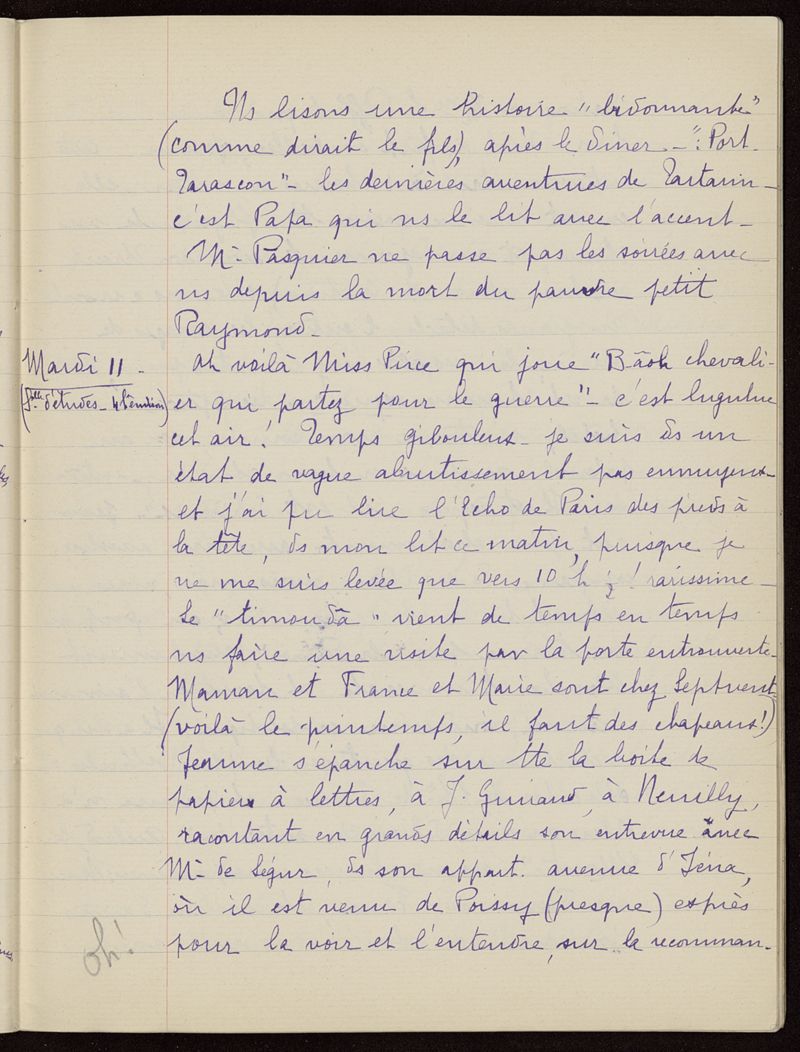 Ns lisons une histoire "bidonnante"
(comme dirait le fils), après le dîner - ": Port-
Tarascon" - les dernières aventures de Tartarin -
c'est Papa qui ns le lit avec l'accent -
Mr Pasquier ne passe pas les soirées avec
ns depuis la mort du pauvre petit
Raymond -
Mardi 11 -
(Slle d'études - 4h environ)
Ah voilà Miss Pirce qui joue "B-âoh chevali-
er qui partez pour le guerre" - c'est lugubre
cet air ! Temps gibouleux - je suis ds un
état de vague abrutissement pas ennuyeux -
et j'ai pu lire l'Echo de Paris des pieds à
la tête, ds mon lit ce matin, puisque je
ne me suis levée que vers 10 h ½ ! rarissime -
Le "timoudâ" vient de temps en temps
ns faire une visite par la porte entrouverte -
Maman et France et Marie sont chez Septvent
(voilà le printemps, il faut des chapeaux!)
Jeanne s'épanche sur tte la boîte de
papier à lettres, à J. à Neuilly,
racontant en grands détails son entrevue avec
Mr de Ségur, ds son appart. avenue d'Iéna,
où il est venu de Poissy (presque) exprès
pour la voir et l'entendre, sur la recomman-
oh!